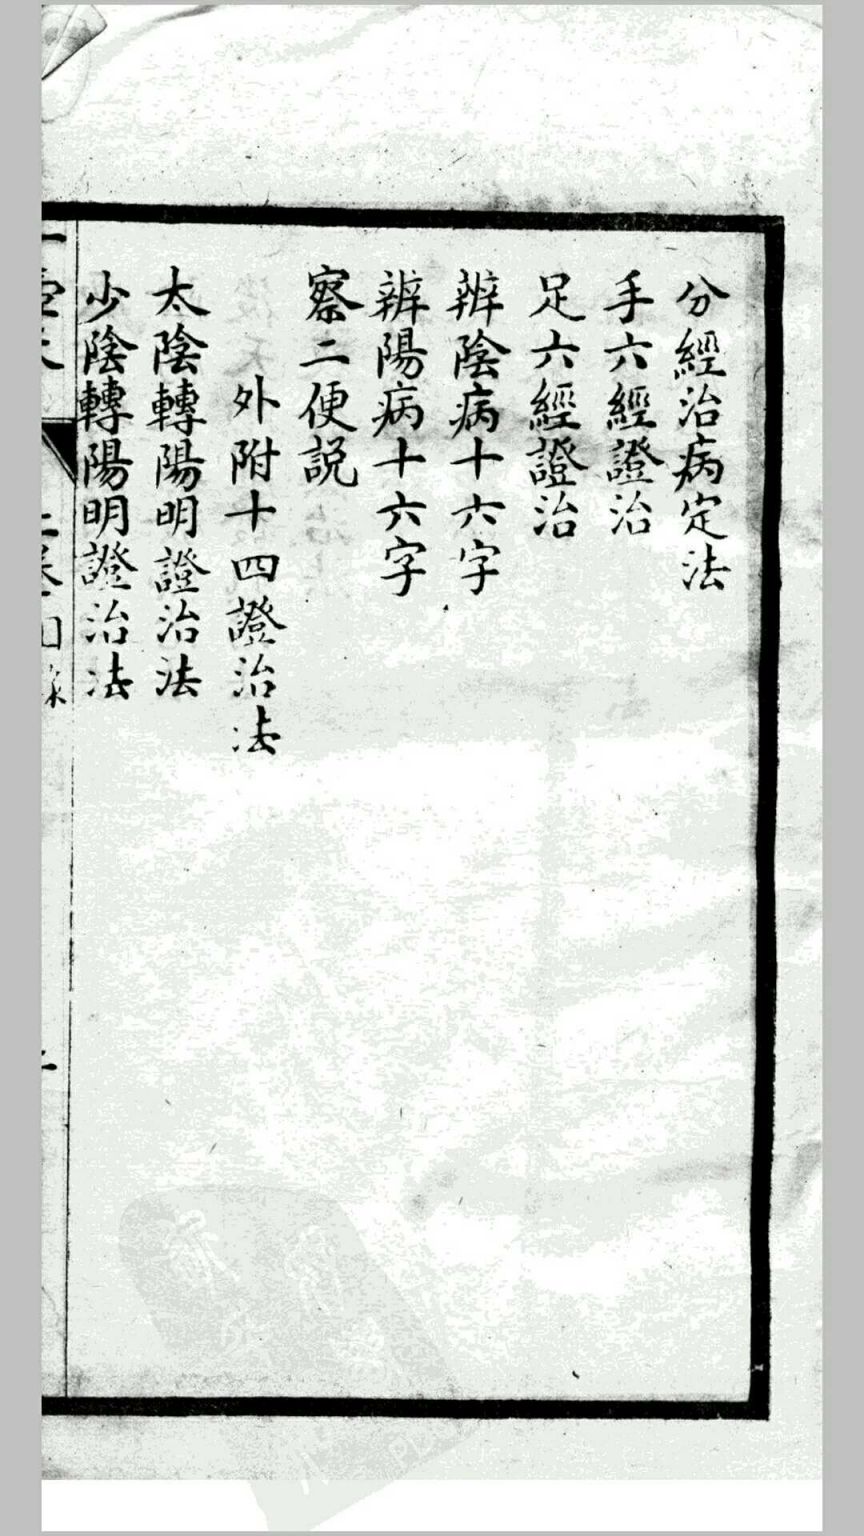 分經治病定法
手六經證治
足六經證治
辨陰病十六字
辨陽病十六字
察二便説
外附十四證治法
太陰轉陽明證治法
少陰轉陽明證治法